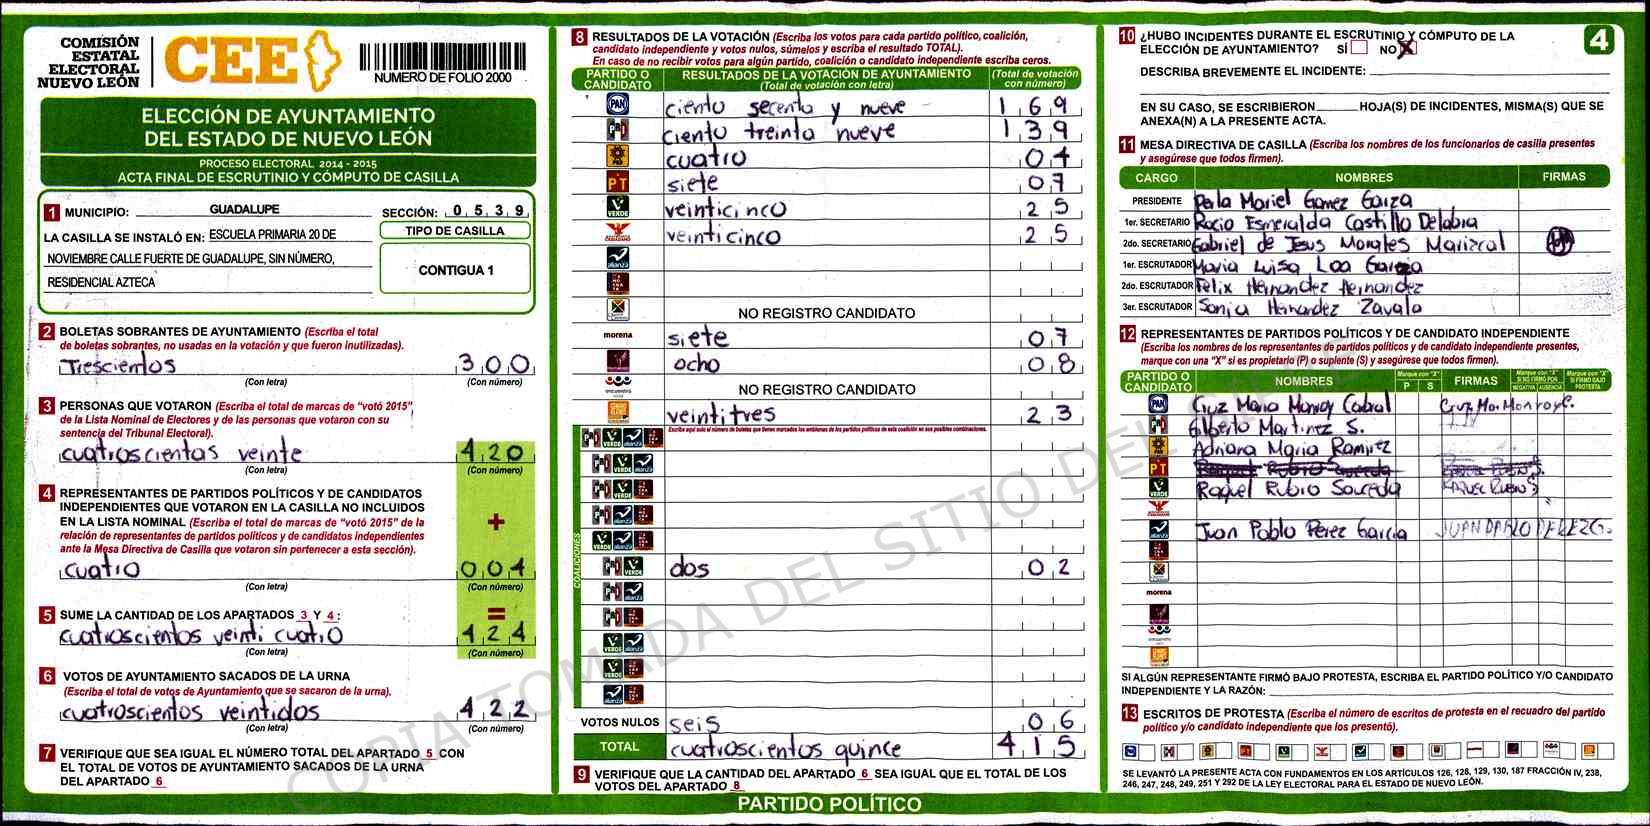 COMISIÓN
ESTATAL
ELECTORAL
NUEVO LEÓN
CEE
NUMERO DE FOLIO 2000
ELECCIÓN DE AYUNTAMIENTO
DEL ESTADO DE NUEVO LEÓN
PROCESO ELECTORAL 2014 - 2015
ACTA FINAL DE ESCRUTINIO Y CÓMPUTO DE CASILLA
1 MUNICIPIO: GUADALUPE SECCIÓN: 0 5 3 9
LA CASILLA SE INSTALÓ EN: ESCUELA PRIMARIA 20 DE
NOVIEMBRE CALLE FUERTE DE GUADALUPE, SIN NÚMERO,
RESIDENCIAL AZTECA
TIPO DE CASILLA
CONTIGUA 1
2 BOLETAS SOBRANTES DE AYUNTAMIENTO (Escriba el total
de boletas sobrantes, no usadas en la votación y que fueron inutilizadas).
Trescientos 3 0 0
(Con letra) (Con número)
3 PERSONAS QUE VOTARON (Escriba el total de marcas de "votó 2015"
de la Lista Nominal de Electores y de las personas que votaron con su
sentencia del Tribunal Electoral).
cuatroscientas veinte 4 2 0
(Con letra) (Con número)
4 REPRESENTANTES DE PARTIDOS POLÍTICOS Y DE CANDIDATOS
INDEPENDIENTES QUE VOTARON EN LA CASILLA NO INCLUIDOS
EN LA LISTA NOMINAL (Escriba el total de marcas de "votó 2015" de la
relación de representantes de partidos políticos y de candidatos independientes
ante la Mesa Directiva de Casilla que votaron sin pertenecer a esta sección).
+
cuatro 0 0 4
(Con letra) (Con número)
=
5 SUME LA CANTIDAD DE LOS APARTADOS 3 Y 4 :
cuatroscientos veinti cuatro 4 2 4
(Con letra) (Con número)
6 VOTOS DE AYUNTAMIENTO SACADOS DE LA URNA
(Escriba el total de votos de Ayuntamiento que se sacaron de la urna).
cuatroscientos veintidos 4 2 2
(Con letra) (Con número)
7 VERIFIQUE QUE SEA IGUAL EL NÚMERO TOTAL DEL APARTADO 5 CON
EL TOTAL DE VOTOS DE AYUNTAMIENTO SACADOS DE LA URNA
DEL APARTADO 6
8 RESULTADOS DE LA VOTACIÓN (Escriba los votos para cada partido político, coalición,
candidato independiente y votos nulos, súmelos y escriba el resultado TOTAL).
En caso de no recibir votos para algún partido, coalición o candidato independiente escriba ceros.
PARTIDO O CANDIDATO RESULTADOS DE LA VOTACIÓN DE AYUNTAMIENTO (Total de votación con letra) (Total de votación con número)
PAN ciento secenta y nueve 1 6 9
PRI ciento treinta nueve 1 3 9
PRD cuatro 0 4
PT siete 0 7
VERDE veinticinco 2 5
veinticinco 2 5
alianza
NO REGISTRO CANDIDATO
morena siete 0 7
ocho 0 8
NO REGISTRO CANDIDATO
veintitres 2 3
Escriba aquí solo el número de boletas que tienen marcados los emblemas de los partidos políticos de esta coalición en sus posibles combinaciones.
COALICIONES
PRI VERDE dos 0 2
VOTOS NULOS seis 0 6
TOTAL cuatroscientos quince 4 1 5
9 VERIFIQUE QUE LA CANTIDAD DEL APARTADO 6 SEA IGUAL QUE EL TOTAL DE LOS
VOTOS DEL APARTADO 8
PARTIDO POLÍTICO
10 ¿HUBO INCIDENTES DURANTE EL ESCRUTINIO Y CÓMPUTO DE LA
ELECCIÓN DE AYUNTAMIENTO? SÍ NO X
4
DESCRIBA BREVEMENTE EL INCIDENTE:
EN SU CASO, SE ESCRIBIERON HOJA(S) DE INCIDENTES, MISMA(S) QUE SE
ANEXA(N) A LA PRESENTE ACTA.
11 MESA DIRECTIVA DE CASILLA (Escriba los nombres de los funcionarios de casilla presentes
y asegúrese que todos firmen).
CARGO NOMBRES FIRMAS
PRESIDENTE Perla Mariel Gamez Garza
1er. SECRETARIO Rocio Esmeralda Castillo Delabra
2do. SECRETARIO Gabriel de Jesus Morales Mariscal
1er. ESCRUTADOR Maria Luisa Loa Garcia
2do. ESCRUTADOR Felix Hernandez Hernandez
3er. ESCRUTADOR Sonia Hernandez Zavala
12 REPRESENTANTES DE PARTIDOS POLÍTICOS Y DE CANDIDATO INDEPENDIENTE
(Escriba los nombres de los representantes de partidos políticos y de candidato independiente presentes,
marque con una "X" si es propietario (P) o suplente (S) y asegúrese que todos firmen).
PARTIDO O CANDIDATO NOMBRES Marque con "X" P S FIRMAS Marque con "X" SI NO FIRMÓ POR NEGATIVA AUSENCIA Marque con "X" SI FIRMÓ BAJO PROTESTA
PAN Cruz Maria Monroy Cabral Cruz Ma. Monroy C.
PRI Gilberto Martinez S.
PRD Adriana Maria Ramirez
PT Raquel Rubio Sauceda
VERDE Raquel Rubio Sauceda Raquel Rubio S
alianza Juan Pablo Perez Garcia JUAN PABLO PEREZ G.
morena
SI ALGÚN REPRESENTANTE FIRMÓ BAJO PROTESTA, ESCRIBA EL PARTIDO POLÍTICO Y/O CANDIDATO
INDEPENDIENTE Y LA RAZÓN:
13 ESCRITOS DE PROTESTA (Escriba el número de escritos de protesta en el recuadro del partido
político y/o candidato independiente que los presentó).
SE LEVANTÓ LA PRESENTE ACTA CON FUNDAMENTOS EN LOS ARTÍCULOS 126, 128, 129, 130, 187 FRACCIÓN IV, 238,
246, 247, 248, 249, 251 Y 292 DE LA LEY ELECTORAL PARA EL ESTADO DE NUEVO LEÓN.
COPIA TOMADA DEL SITIO DEL